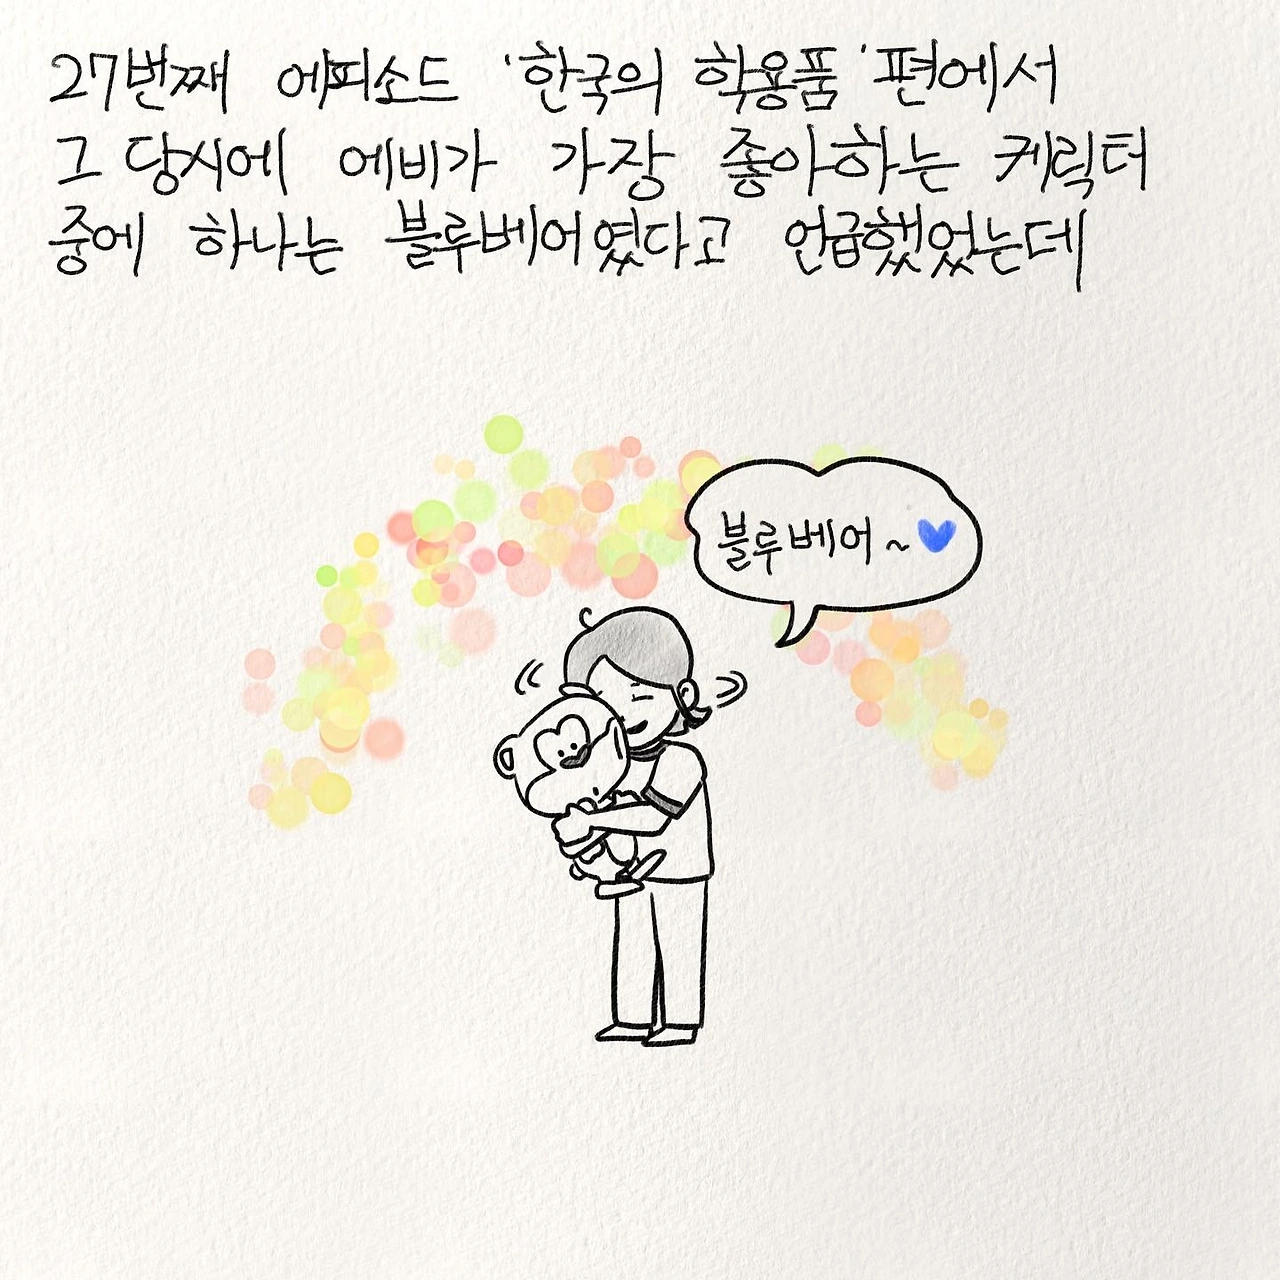 27번째 에피소드 '한국의 학용품' 편에서
그 당시에 에비가 가장 좋아하는 케릭터
중에 하나는 블루베어였다고 언급했었는데
블루베어~